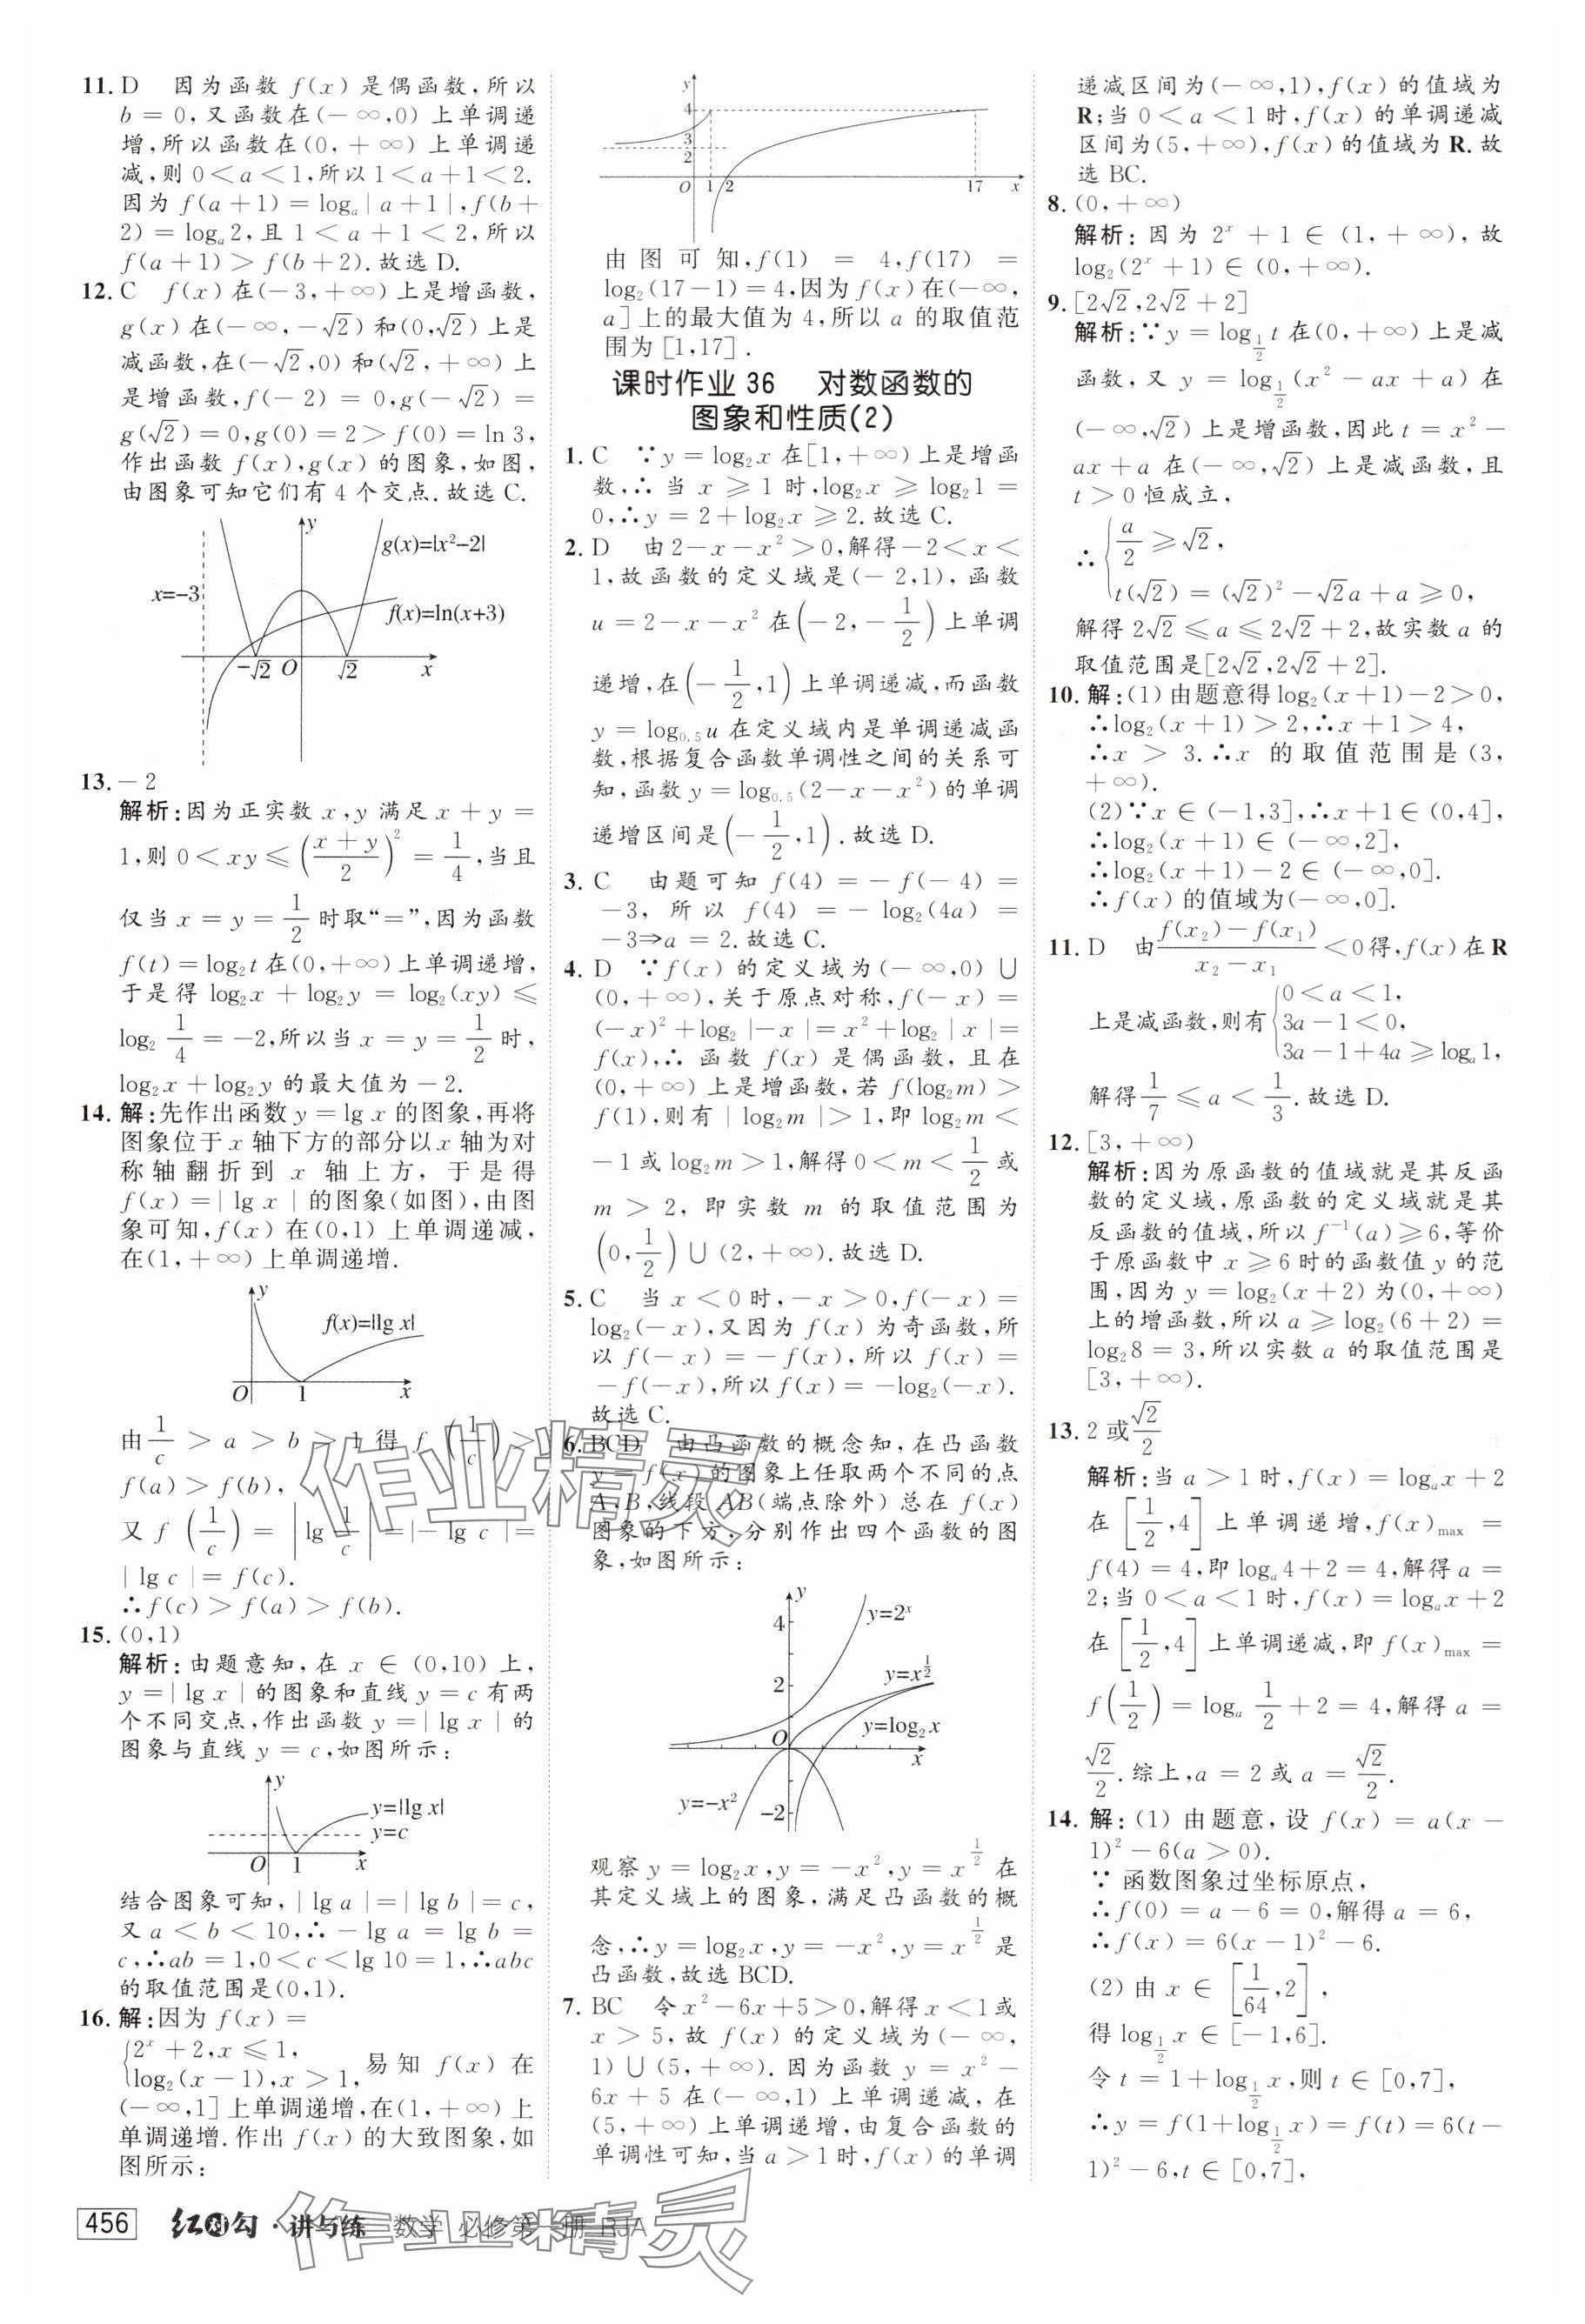 11. D　因为函数 f(x) 是偶函数,所以
b = 0,又函数在(-∞,0) 上单调递
增,所以函数在(0,+∞) 上单调递
减,则 0<a<1,所以 1<a+1<2.
因为 f(a+1) = logₐ|a+1|,f(b+
2) = logₐ2,且 1<a+1<2,所以
f(a+1) > f(b+2).故选 D.
12. C　f(x) 在(-3,+∞) 上是增函数,
g(x) 在(-∞,-√2) 和(0,√2) 上是
减函数,在(-√2,0) 和(√2,+∞) 上
是增函数,f(-2) = 0,g(-√2) =
g(√2) = 0,g(0) = 2 > f(0) = ln 3,
作出函数 f(x),g(x) 的图象,如图,
由图象可知它们有 4 个交点.故选 C.
y
g(x)=|x²-2|
x=-3
f(x)=ln(x+3)
-√2 O √2 x
13. -2
解析:因为正实数 x,y 满足 x+y =
1,则 0<xy≤((x+y)/2)² = 1/4,当且
仅当 x = y = 1/2 时取“=”,因为函数
f(t) = log₂t 在(0,+∞) 上单调递增,
于是得 log₂x + log₂y = log₂(xy) ≤
log₂ 1/4 = -2,所以当 x = y = 1/2 时,
log₂x + log₂y 的最大值为 -2.
14. 解:先作出函数 y = lg x 的图象,再将
图象位于 x 轴下方的部分以 x 轴为对
称轴翻折到 x 轴上方,于是得
f(x) = |lg x| 的图象(如图),由图
象可知,f(x) 在(0,1) 上单调递减,
在(1,+∞) 上单调递增.
y
f(x)=|lg x|
O 1 x
由 1/c > a > b > 1 得 f(1/c) >
f(a) > f(b),
又 f(1/c) = |lg 1/c| = |-lg c| =
|lg c| = f(c).
∴f(c) > f(a) > f(b).
15. (0,1)
解析:由题意知,在 x ∈ (0,10) 上,
y = |lg x| 的图象和直线 y = c 有两
个不同交点,作出函数 y = |lg x| 的
图象与直线 y = c,如图所示:
y
y=|lg x|
y=c
O 1 x
结合图象可知,|lg a| = |lg b| = c,
又 a < b < 10,∴-lg a = lg b =
c,∴ab = 1,0<c<lg 10 = 1,∴abc
的取值范围是(0,1).
16. 解:因为 f(x) =
{2ˣ+2,x≤1,
log₂(x-1),x>1, 易知 f(x) 在
(-∞,1] 上单调递增,在(1,+∞) 上
单调递增.作出 f(x) 的大致图象,如
图所示:
y
4
3
2
O 1 2 17 x
由图可知,f(1) = 4,f(17) =
log₂(17-1) = 4,因为 f(x) 在(-∞,
a] 上的最大值为 4,所以 a 的取值范
围为[1,17].
课时作业 36　对数函数的
图象和性质(2)
1. C　∵y = log₂x 在[1,+∞) 上是增函
数,∴当 x ≥ 1 时,log₂x ≥ log₂1 =
0,∴y = 2+log₂x ≥ 2.故选 C.
2. D　由 2-x-x² > 0,解得 -2<x<
1,故函数的定义域是(-2,1),函数
u = 2-x-x² 在(-2,-1/2) 上单调
递增,在(-1/2,1) 上单调递减,而函数
y = log₀.₅u 在定义域内是单调递减函
数,根据复合函数单调性之间的关系可
知,函数 y = log₀.₅(2-x-x²) 的单调
递增区间是(-1/2,1).故选 D.
3. C　由题可知 f(4) = -f(-4) =
-3,所以 f(4) = -log₂(4a) =
-3⇒a = 2.故选 C.
4. D　∵f(x) 的定义域为(-∞,0) ∪
(0,+∞),关于原点对称,f(-x) =
(-x)²+log₂|-x| = x²+log₂|x| =
f(x),∴函数 f(x) 是偶函数,且在
(0,+∞) 上是增函数,若 f(log₂m) >
f(1),则有 |log₂m| > 1,即 log₂m <
-1 或 log₂m > 1,解得 0<m<1/2 或
m > 2,即实数 m 的取值范围为
(0,1/2) ∪ (2,+∞).故选 D.
5. C　当 x < 0 时,-x > 0,f(-x) =
log₂(-x),又因为 f(x) 为奇函数,所
以 f(-x) = -f(x),所以 f(x) =
-f(-x),所以 f(x) = -log₂(-x).
故选 C.
6. BCD　由凸函数的概念知,在凸函数
y = f(x) 的图象上任取两个不同的点
A,B,线段 AB(端点除外) 总在 f(x)
图象的下方,分别作出四个函数的图
象,如图所示:
y
4
y=2ˣ
2
y=x^(1/2)
y=log₂x
O x
y=-x²
-2
观察 y = log₂x,y = -x²,y = x^(1/2) 在
其定义域上的图象,满足凸函数的概
念,∴y = log₂x,y = -x²,y = x^(1/2) 是
凸函数,故选 BCD.
7. BC　令 x²-6x+5>0,解得 x<1 或
x > 5,故 f(x) 的定义域为(-∞,
1) ∪ (5,+∞).因为函数 y = x²-
6x+5 在(-∞,1) 上单调递减,在
(5,+∞) 上单调递增,由复合函数的
单调性可知,当 a>1 时,f(x) 的单调
递减区间为(-∞,1),f(x) 的值域为
R;当 0<a<1 时,f(x) 的单调递减
区间为(5,+∞),f(x) 的值域为 R.故
选 BC.
8. (0,+∞)
解析:因为 2ˣ+1 ∈ (1,+∞),故
log₂(2ˣ+1) ∈ (0,+∞).
9. [2√2,2√2+2]
解析:∵y = log_(1/2) t 在(0,+∞) 上是减
函数,又 y = log_(1/2)(x²-ax+a) 在
(-∞,√2) 上是增函数,因此 t = x²-
ax+a 在(-∞,√2) 上是减函数,且
t > 0 恒成立,
∴{a/2 ≥ √2,
t(√2) = (√2)²-√2a+a ≥ 0,
解得 2√2 ≤ a ≤ 2√2+2,故实数 a 的
取值范围是[2√2,2√2+2].
10. 解:(1)由题意得 log₂(x+1)-2>0,
∴log₂(x+1) > 2,∴x+1 > 4,
∴x > 3.∴x 的取值范围是(3,
+∞).
(2)∵x ∈ (-1,3],∴x+1 ∈ (0,4],
∴log₂(x+1) ∈ (-∞,2],
∴log₂(x+1)-2 ∈ (-∞,0].
∴f(x) 的值域为(-∞,0].
11. D　由 (f(x₂)-f(x₁))/(x₂-x₁) < 0 得,f(x) 在 R
上是减函数,则有{0<a<1,
3a-1<0,
3a-1+4a ≥ logₐ1,
解得 1/7 ≤ a < 1/3.故选 D.
12. [3,+∞)
解析:因为原函数的值域就是其反函
数的定义域,原函数的定义域就是其
反函数的值域,所以 f⁻¹(a)≥6,等价
于原函数中 x ≥ 6 时的函数值 y 的范
围,因为 y = log₂(x+2) 为(0,+∞)
上的增函数,所以 a ≥ log₂(6+2) =
log₂8 = 3,所以实数 a 的取值范围是
[3,+∞).
13. 2 或 √2/2
解析:当 a > 1 时,f(x) = logₐx+2
在[1/2,4] 上单调递增,f(x)max =
f(4) = 4,即 logₐ4+2 = 4,解得 a =
2;当 0<a<1 时,f(x) = logₐx+2
在[1/2,4] 上单调递减,即 f(x)max =
f(1/2) = logₐ 1/2 + 2 = 4,解得 a =
√2/2.综上,a = 2 或 a = √2/2.
14. 解:(1) 由题意,设 f(x) = a(x-
1)²-6(a > 0).
∵函数图象过坐标原点,
∴f(0) = a-6 = 0,解得 a = 6,
∴f(x) = 6(x-1)²-6.
(2) 由 x ∈ [1/64,2],
得 log_(1/2) x ∈ [-1,6].
令 t = 1+log_(1/2) x,则 t ∈ [0,7],
∴y = f(1+log_(1/2) x) = f(t) = 6(t-
1)²-6,t ∈ [0,7],
作业精灵
456 红对勾·讲与练 数学 必修第一册 RJA
作业精灵